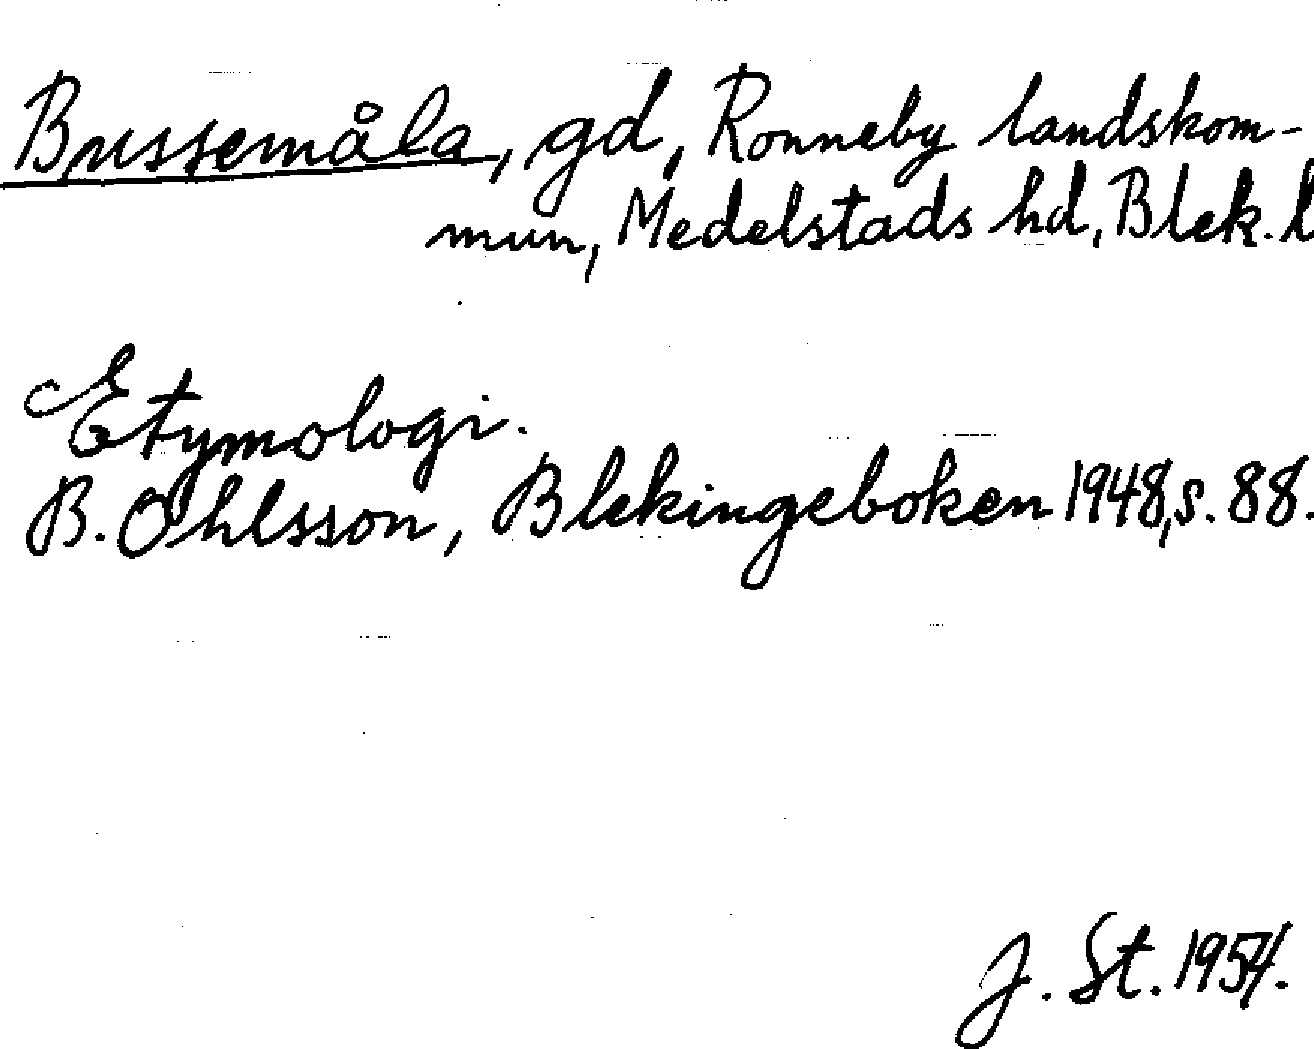 Bussemåla, gd, Ronneby landskom-
mun, Medelstads hd, Blek. l
Etymologi.
B. Ohlsson, Blekingeboken 1948, s. 88.
J. St. 1954.